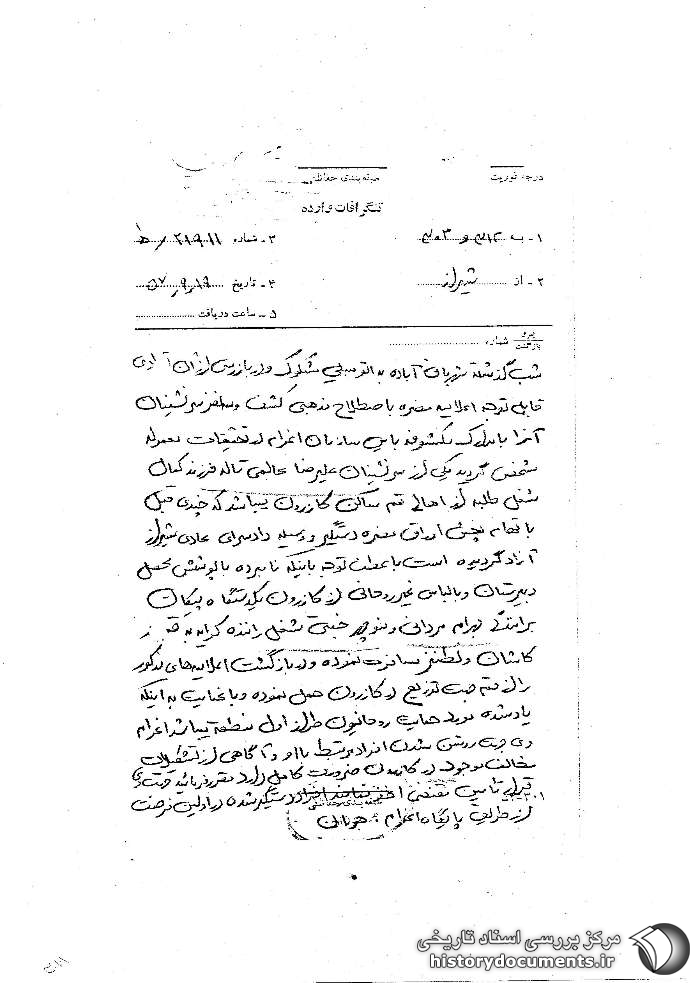 درجه فوریت
طبقه‌بندی حفاظتی
تلگرافات وارده
۱ـ به ۳۱۲ و ۳۰۳
۳ـ شماره ۲۱۹۱۱ / ه‍ ۱
۲ـ از شیراز
۴ـ تاریخ ۵۷٫۹٫۱۹
۵ـ ساعت دریافت
پیرو
بازگشت شماره
شب گذشته شهربانی آباده به اتومبیلی مشکوک و در بازرسی از آن تعدادی
قابل توجه اعلامیه مضره باصطلاح مذهبی کشف و سرنشینان
آنرا با مدارک مکشوفه باین سازمان اعزام در تحقیقات معموله
مشخص گردید یکی از سرنشینان علیرضا عالمی فرزند کمال
شغل طلبه از اهالی قم ساکن کازرون میباشد که چندی قبل
باتهام پخش اوراق مضره دستگیر و بوسیله دادسرای عادی شیراز
آزاد گردیده است با عطف توجه باینکه نامبرده با پوشش محصل
دبیرستان و با لباس غیر روحانی از کازرون با یکدستگاه پیکان
برانندگی بهرام مردانی و منوچهر شغل راننده کرایه به قم
کاشان و نطنز مسافرت نموده و در بازگشت اعلامیه‌های مذکور
را از قم جهت توزیع در کازرون حمل نموده و با عنایت به اینکه
یادشده مورد حمایت روحانیون طراز اول منطقه میباشد اعزام
وی جهت روشن شدن افراد مرتبط با او و آگاهی از تشکیلات
مخالف موجود در کازرون ضرورت کامل دارد مقرر فرمائید جهت وی
قرار تأمین مقتضی اخذ دستگیر شده در اولین فرصت
از طریق پایگاه اعزام
طبقه‌بندی حفاظتی
مرکز بررسی اسناد تاریخی
historydocuments.ir